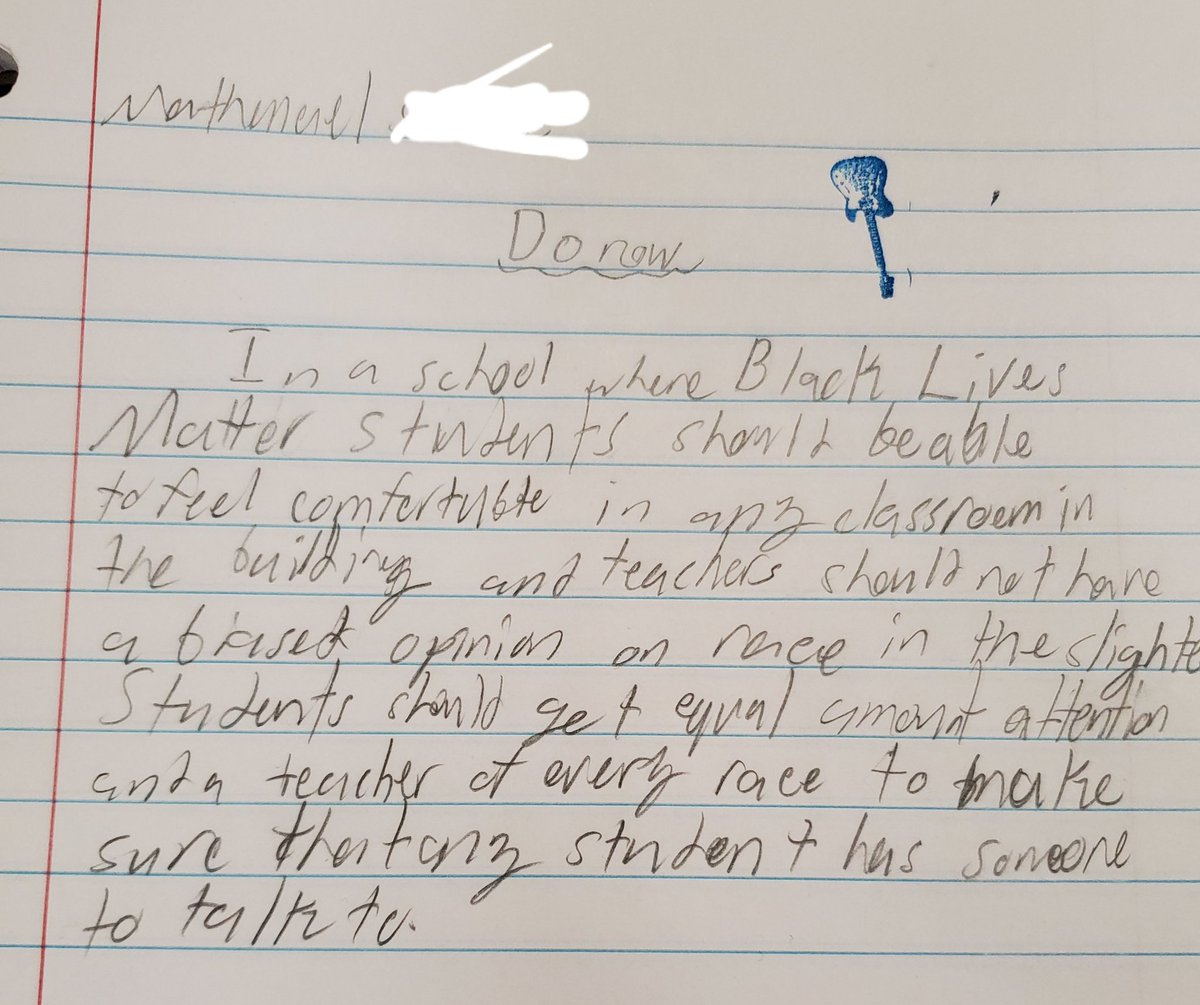 Nathaneael
Do now
In a school where Black Lives
Matter students should be able
to feel comfertuble in any classroom in
the building and teachers should not have
a biased opinion on race in the slighte
Students should get equal amount attention
and a teacher of every race to make
sure that any student has someone
to talk to.